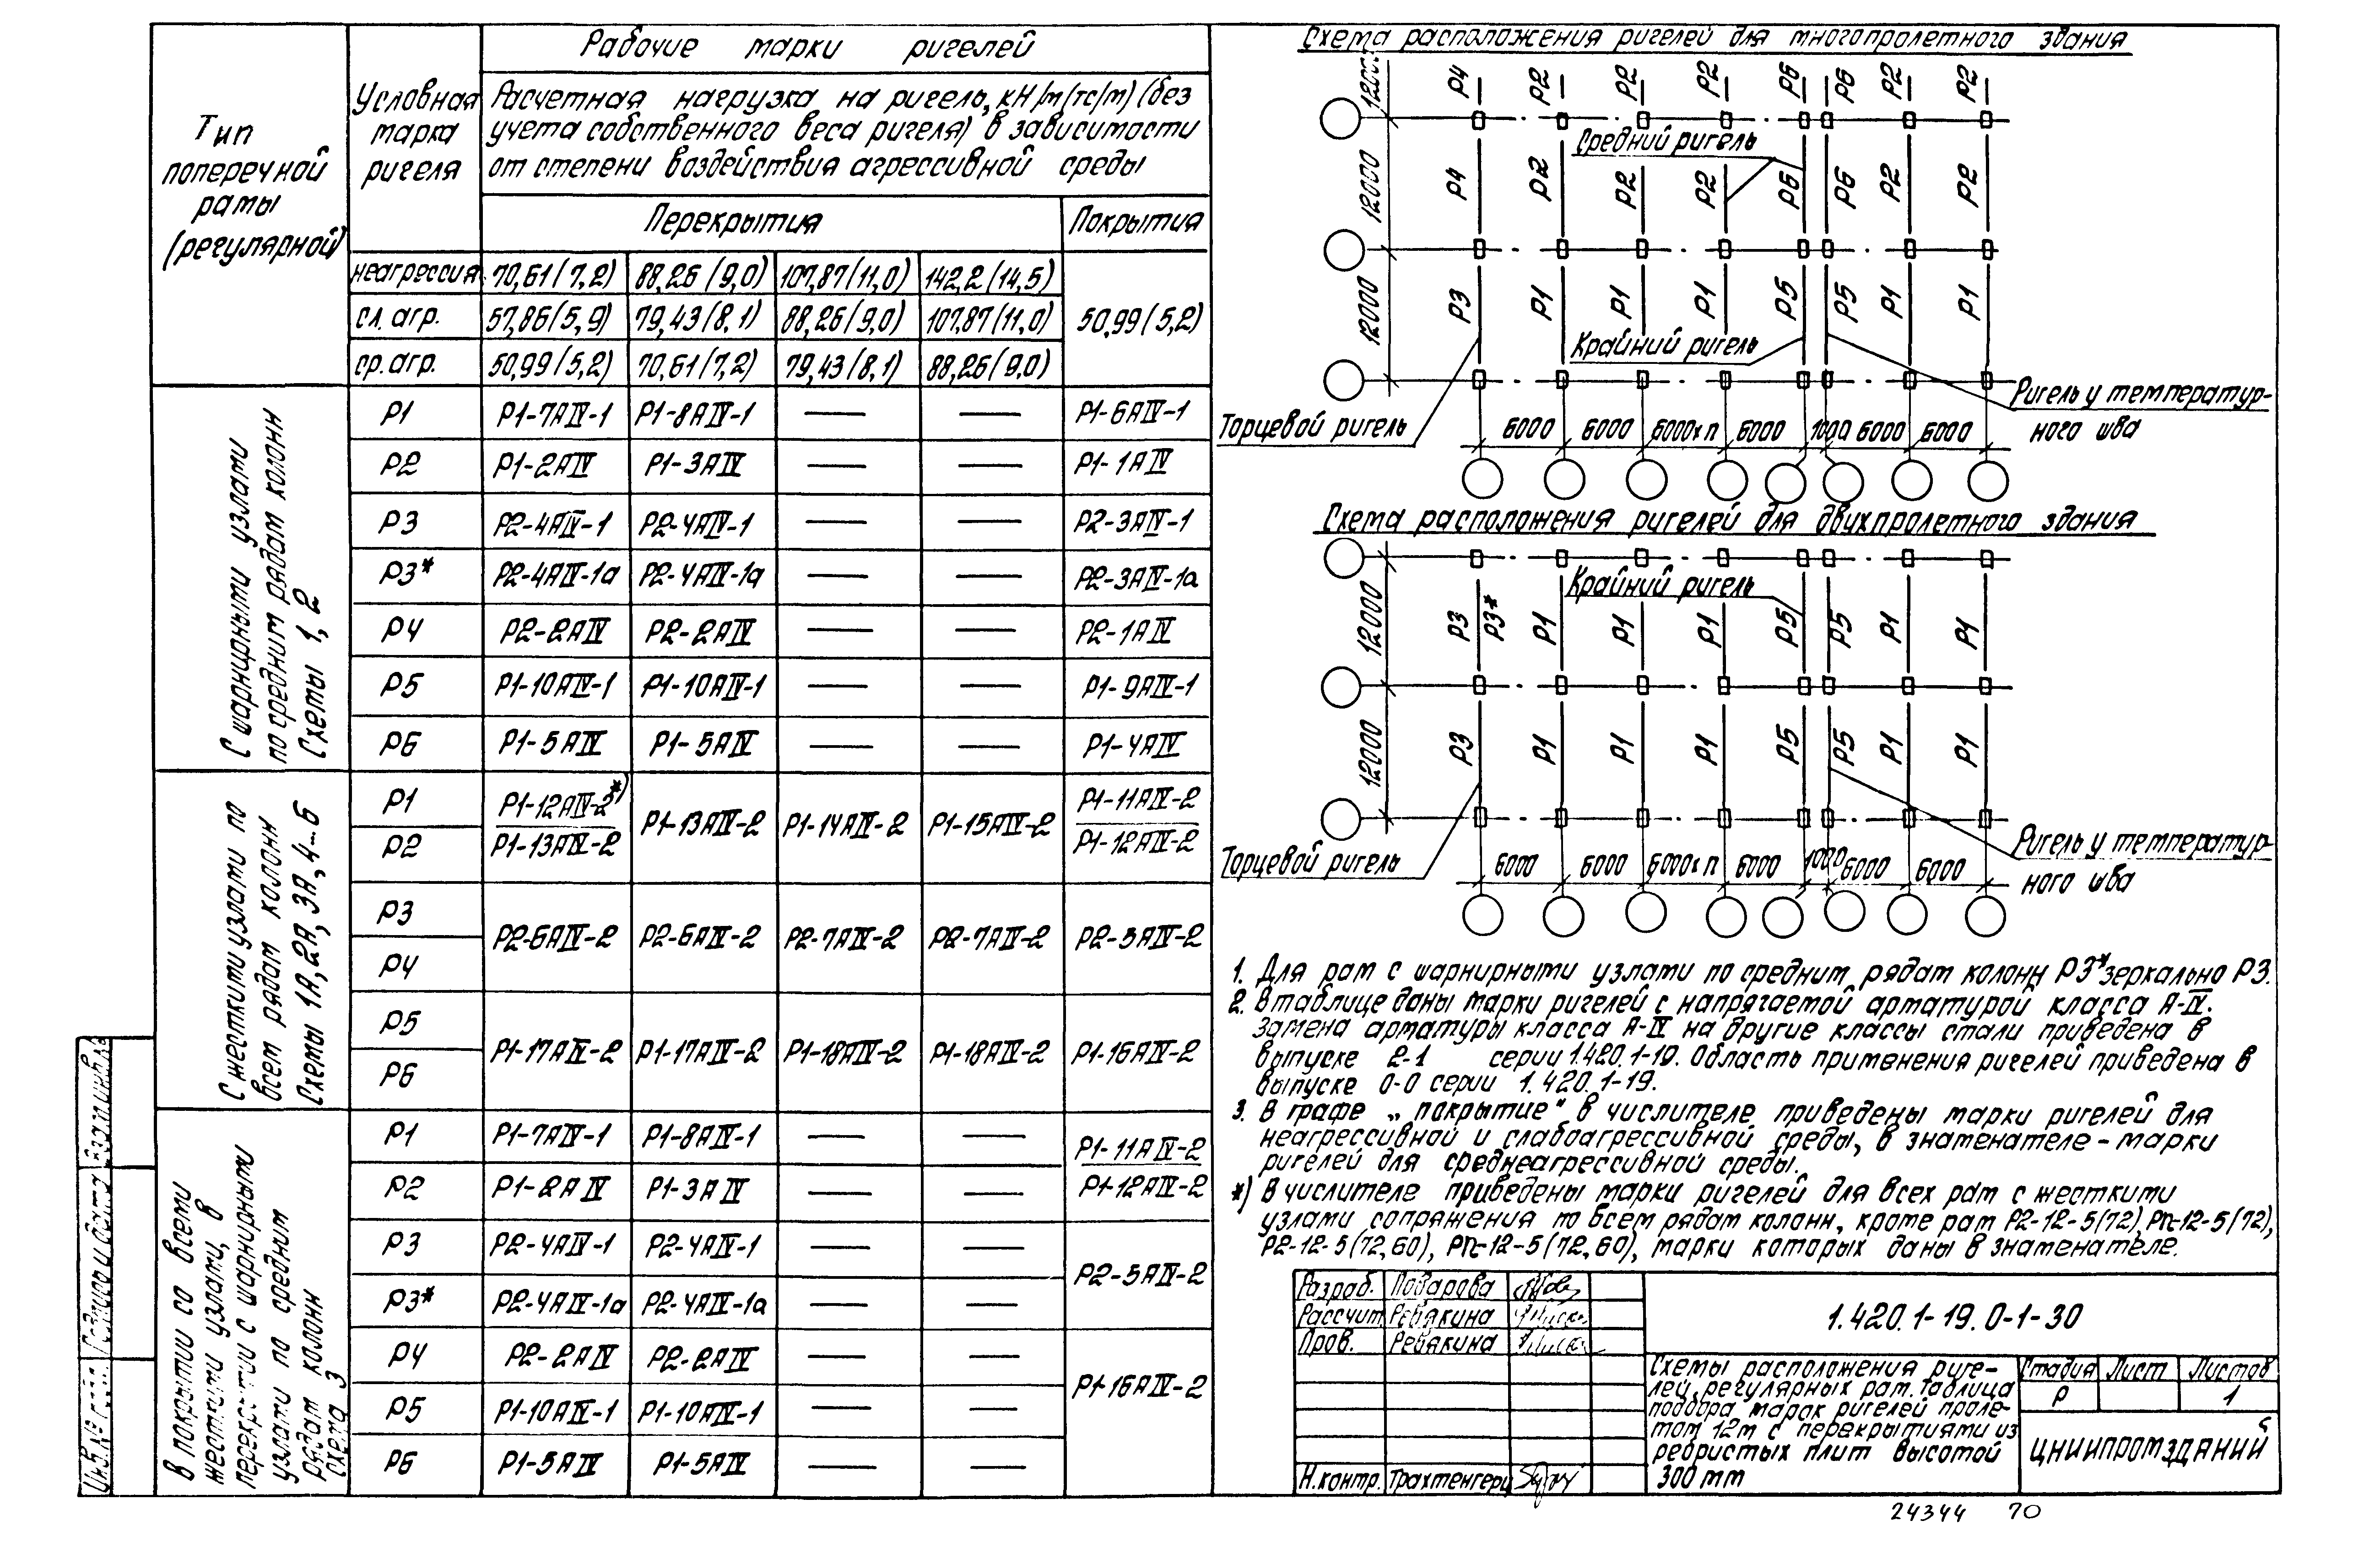 Тип
поперечной
рамы
(регулярной)
Условная
марка
ригеля
Рабочие марки ригелей
Расчетная нагрузка на ригель, кН/м (тс/м) (без
учета собственного веса ригеля) в зависимости
от степени воздействия агрессивной среды
Перекрытия Покрытия
неагрессия 70,61 (7,2) 88,26 (9,0) 107,87 (11,0) 142,2 (14,5)
сл. агр. 57,86 (5,9) 79,43 (8,1) 88,26 (9,0) 107,87 (11,0) 50,99 (5,2)
ср. агр. 50,99 (5,2) 70,61 (7,2) 79,43 (8,1) 88,26 (9,0)
С шарнирными узлами
по средним рядам колонн
Схемы 1, 2
Р1 Р1-7АIV-1 Р1-8АIV-1 — — Р1-6АIV-1
Р2 Р1-2АIV Р1-3АIV — — Р1-1АIV
Р3 Р2-4АIV-1 Р2-4АIV-1 — — Р2-3АIV-1
Р3* Р2-4АIV-1а Р2-4АIV-1а — — Р2-3АIV-1а
Р4 Р2-2АIV Р2-2АIV — — Р2-1АIV
Р5 Р1-10АIV-1 Р1-10АIV-1 — — Р1-9АIV-1
Р6 Р1-5АIV Р1-5АIV — — Р1-4АIV
С жесткими узлами по
всем рядам колонн
Схемы 1А, 2А, 3А, 4–6
Р1 Р1-12АIV-2*) Р1-11АIV-2
Р1-13АIV-2 Р1-14АIV-2 Р1-15АIV-2
Р2 Р1-13АIV-2 Р1-12АIV-2
Р3
Р2-6АIV-2 Р2-6АIV-2 Р2-7АIV-2 Р2-7АIV-2 Р2-5АIV-2
Р4
Р5
Р1-17АIV-2 Р1-17АIV-2 Р1-18АIV-2 Р1-18АIV-2 Р1-16АIV-2
Р6
В покрытии со всеми
жесткими узлами, в
перекрытии с шарнирными
узлами по средним
рядам колонн
схема 3
Р1 Р1-7АIV-1 Р1-8АIV-1 — — Р1-11АIV-2
Р2 Р1-2АIV Р1-3АIV — — Р1-12АIV-2
Р3 Р2-4АIV-1 Р2-4АIV-1 — —
Р2-5АIV-2
Р3* Р2-4АIV-1а Р2-4АIV-1а — —
Р4 Р2-2АIV Р2-2АIV — —
Р1-16АIV-2
Р5 Р1-10АIV-1 Р1-10АIV-1 — —
Р6 Р1-5АIV Р1-5АIV — —
Схема расположения ригелей для многопролетного здания
12000
Р4 Р2 Р2 Р2 Р6 Р6 Р2 Р2
Средний ригель
12000
Р4 Р2 Р2 Р2 Р6 Р6 Р2 Р2
12000
Р3 Р1 Р1 Р1 Р5 Р5 Р1 Р1
Крайний ригель
Торцевой ригель
Ригель у температур-
ного шва
6000 6000 6000хп 6000 1000 6000 6000
Схема расположения ригелей для двухпролетного здания
Крайний ригель
12000
Р3 Р3* Р1 Р1 Р1 Р5 Р5 Р1 Р1
12000
Р3 Р1 Р1 Р1 Р5 Р5 Р1 Р1
Торцевой ригель
Ригель у температур-
ного шва
6000 6000 6000хп 6000 1000 6000 6000
1. Для рам с шарнирными узлами по средним рядам колонн Р3* зеркально Р3.
2. В таблице даны марки ригелей с напрягаемой арматурой класса А-IV.
Замена арматуры класса А-IV на другие классы стали приведена в
выпуске 2-1 серии 1.420.1-19. Область применения ригелей приведена в
выпуске 0-0 серии 1.420.1-19.
3. В графе „покрытие" в числителе приведены марки ригелей для
неагрессивной и слабоагрессивной среды, в знаменателе – марки
ригелей для среднеагрессивной среды.
*) В числителе приведены марки ригелей для всех рам с жесткими
узлами сопряжения по всем рядам колонн, кроме рам Р2-12-5(72), Рп-12-5(72),
Р2-12-5(72,60), Рп-12-5(72,60), марки которых даны в знаменателе.
Разраб. Поварова
Рассчит. Ревякина
Пров. Ревякина
Н.контр. Трахтенгерц
1.420.1-19.0-1-30
Схемы расположения риге-
лей регулярных рам. Таблица
подбора марок ригелей проле-
том 12м с перекрытиями из
ребристых плит высотой
300 мм
Стадия Лист Листов
Р 1
ЦНИИПРОМЗДАНИЙ
Инв. № подл. Подпись и дата Взам.инв.№
24344 70